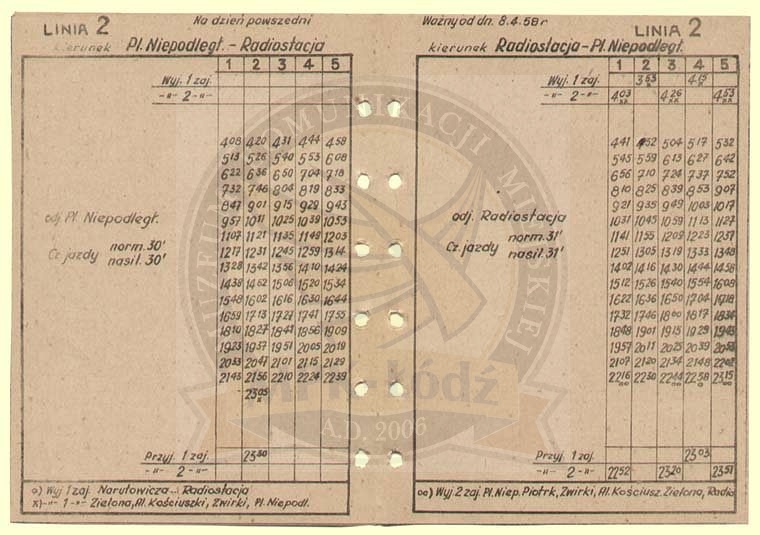 LINIA 2
Na dzień powszedni
kierunek Pl. Niepodległ. - Radiostacja
1 2 3 4 5
Wyj. 1 zaj.
-"- 2 -"-
4 08 4 20 4 31 4 44 4 58
5 13 5 26 5 40 5 53 6 08
6 22 6 36 6 50 7 04 7 18
7 32 7 46 8 04 8 19 8 33
8 47 9 01 9 15 9 29 9 43
9 57 10 11 10 25 10 39 10 53
11 07 11 21 11 35 11 49 12 03
12 17 12 31 12 45 12 59 13 14
13 28 13 42 13 56 14 10 14 24
14 38 14 52 15 06 15 20 15 34
15 48 16 02 16 16 16 30 16 44
16 59 17 13 17 27 17 41 17 55
18 10 18 27 18 41 18 56 19 09
19 23 19 37 19 51 20 05 20 19
20 33 20 47 21 01 21 15 21 29
21 43 21 56 22 10 22 24 22 39
23 05
x
odj. Pl. Niepodległ.
Cz. jazdy norm. 30'
nasil. 30'
Przyj. 1 zaj. 23 30
-"- 2 -"-
o) Wyj 1 zaj. Narutowicza - Radiostacja
x) -"- 1 -"- Zielona, Al. Kościuszki, Żwirki, Pl. Niepodl.
Ważny od dn. 8.4.58 r
LINIA 2
kierunek Radiostacja - Pl. Niepodległ.
1 2 3 4 5
Wyj. 1 zaj. 3 53 4 15
-"- 2 -"- 4 03 4 26 4 53
xx xx xx
4 41 4 52 5 04 5 17 5 32
5 45 5 59 6 13 6 27 6 42
6 56 7 10 7 24 7 37 7 52
8 10 8 25 8 39 8 53 9 07
9 21 9 35 9 49 10 03 10 17
10 31 10 45 10 59 11 13 11 27
11 41 11 55 12 09 12 23 12 37
12 51 13 05 13 19 13 33 13 48
14 02 14 16 14 30 14 44 14 56
15 12 15 26 15 40 15 54 16 08
16 22 16 36 16 50 17 04 17 18
17 32 17 46 18 00 18 17 18 34
18 48 19 01 19 15 19 29 19 43
19 57 20 11 20 25 20 39
21 07 21 20 21 34 21 48
22 16 22 30 22 44 22 58 23 15
oo oo oo oo
odj. Radiostacja
Cz. jazdy norm. 31'
nasil. 31'
Przyj. 1 zaj. 23 03
-"- 2 -"- 22 52 23 20 23 51
oo) Wyj 2 zaj. Pl. Niep. Piotrk, Żwirki, Al. Kościusz. Zielona, Radio
A.D. 2006